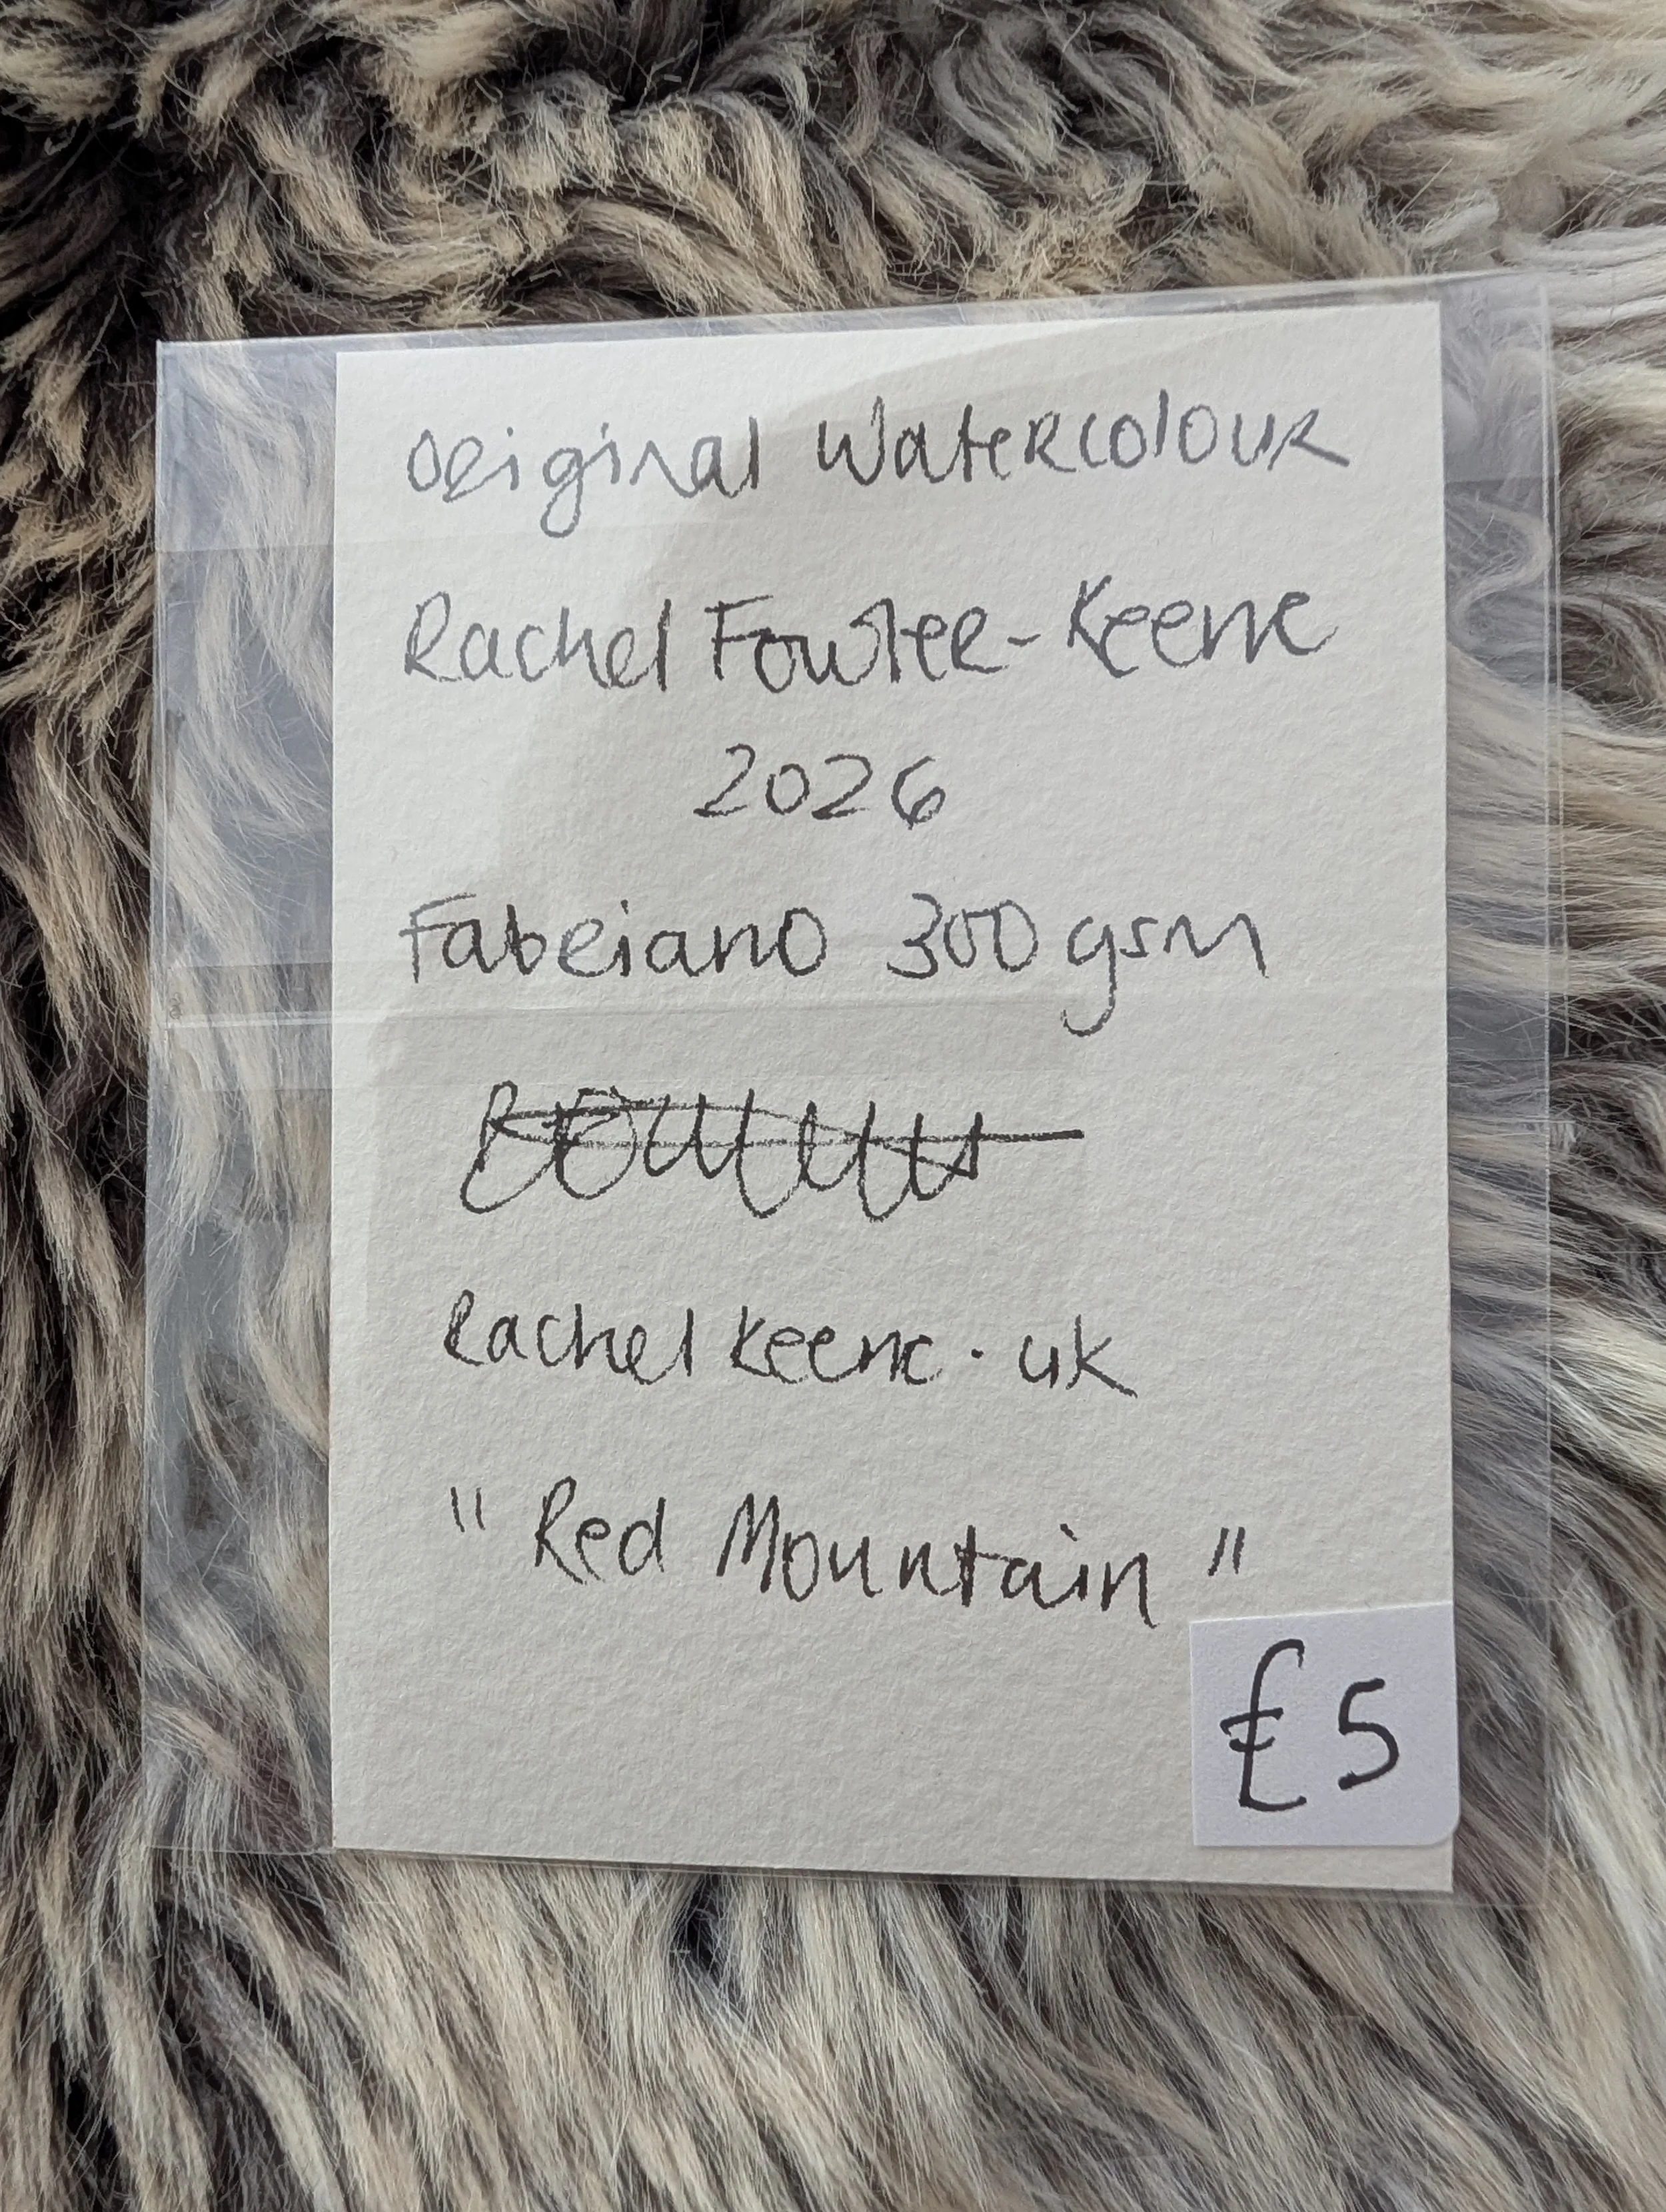 Original Watercolour
Rachel Fowler-Keene
2026
Fabriano 300 gsm
Rachel Keene. uk
"Red Mountain"
£5